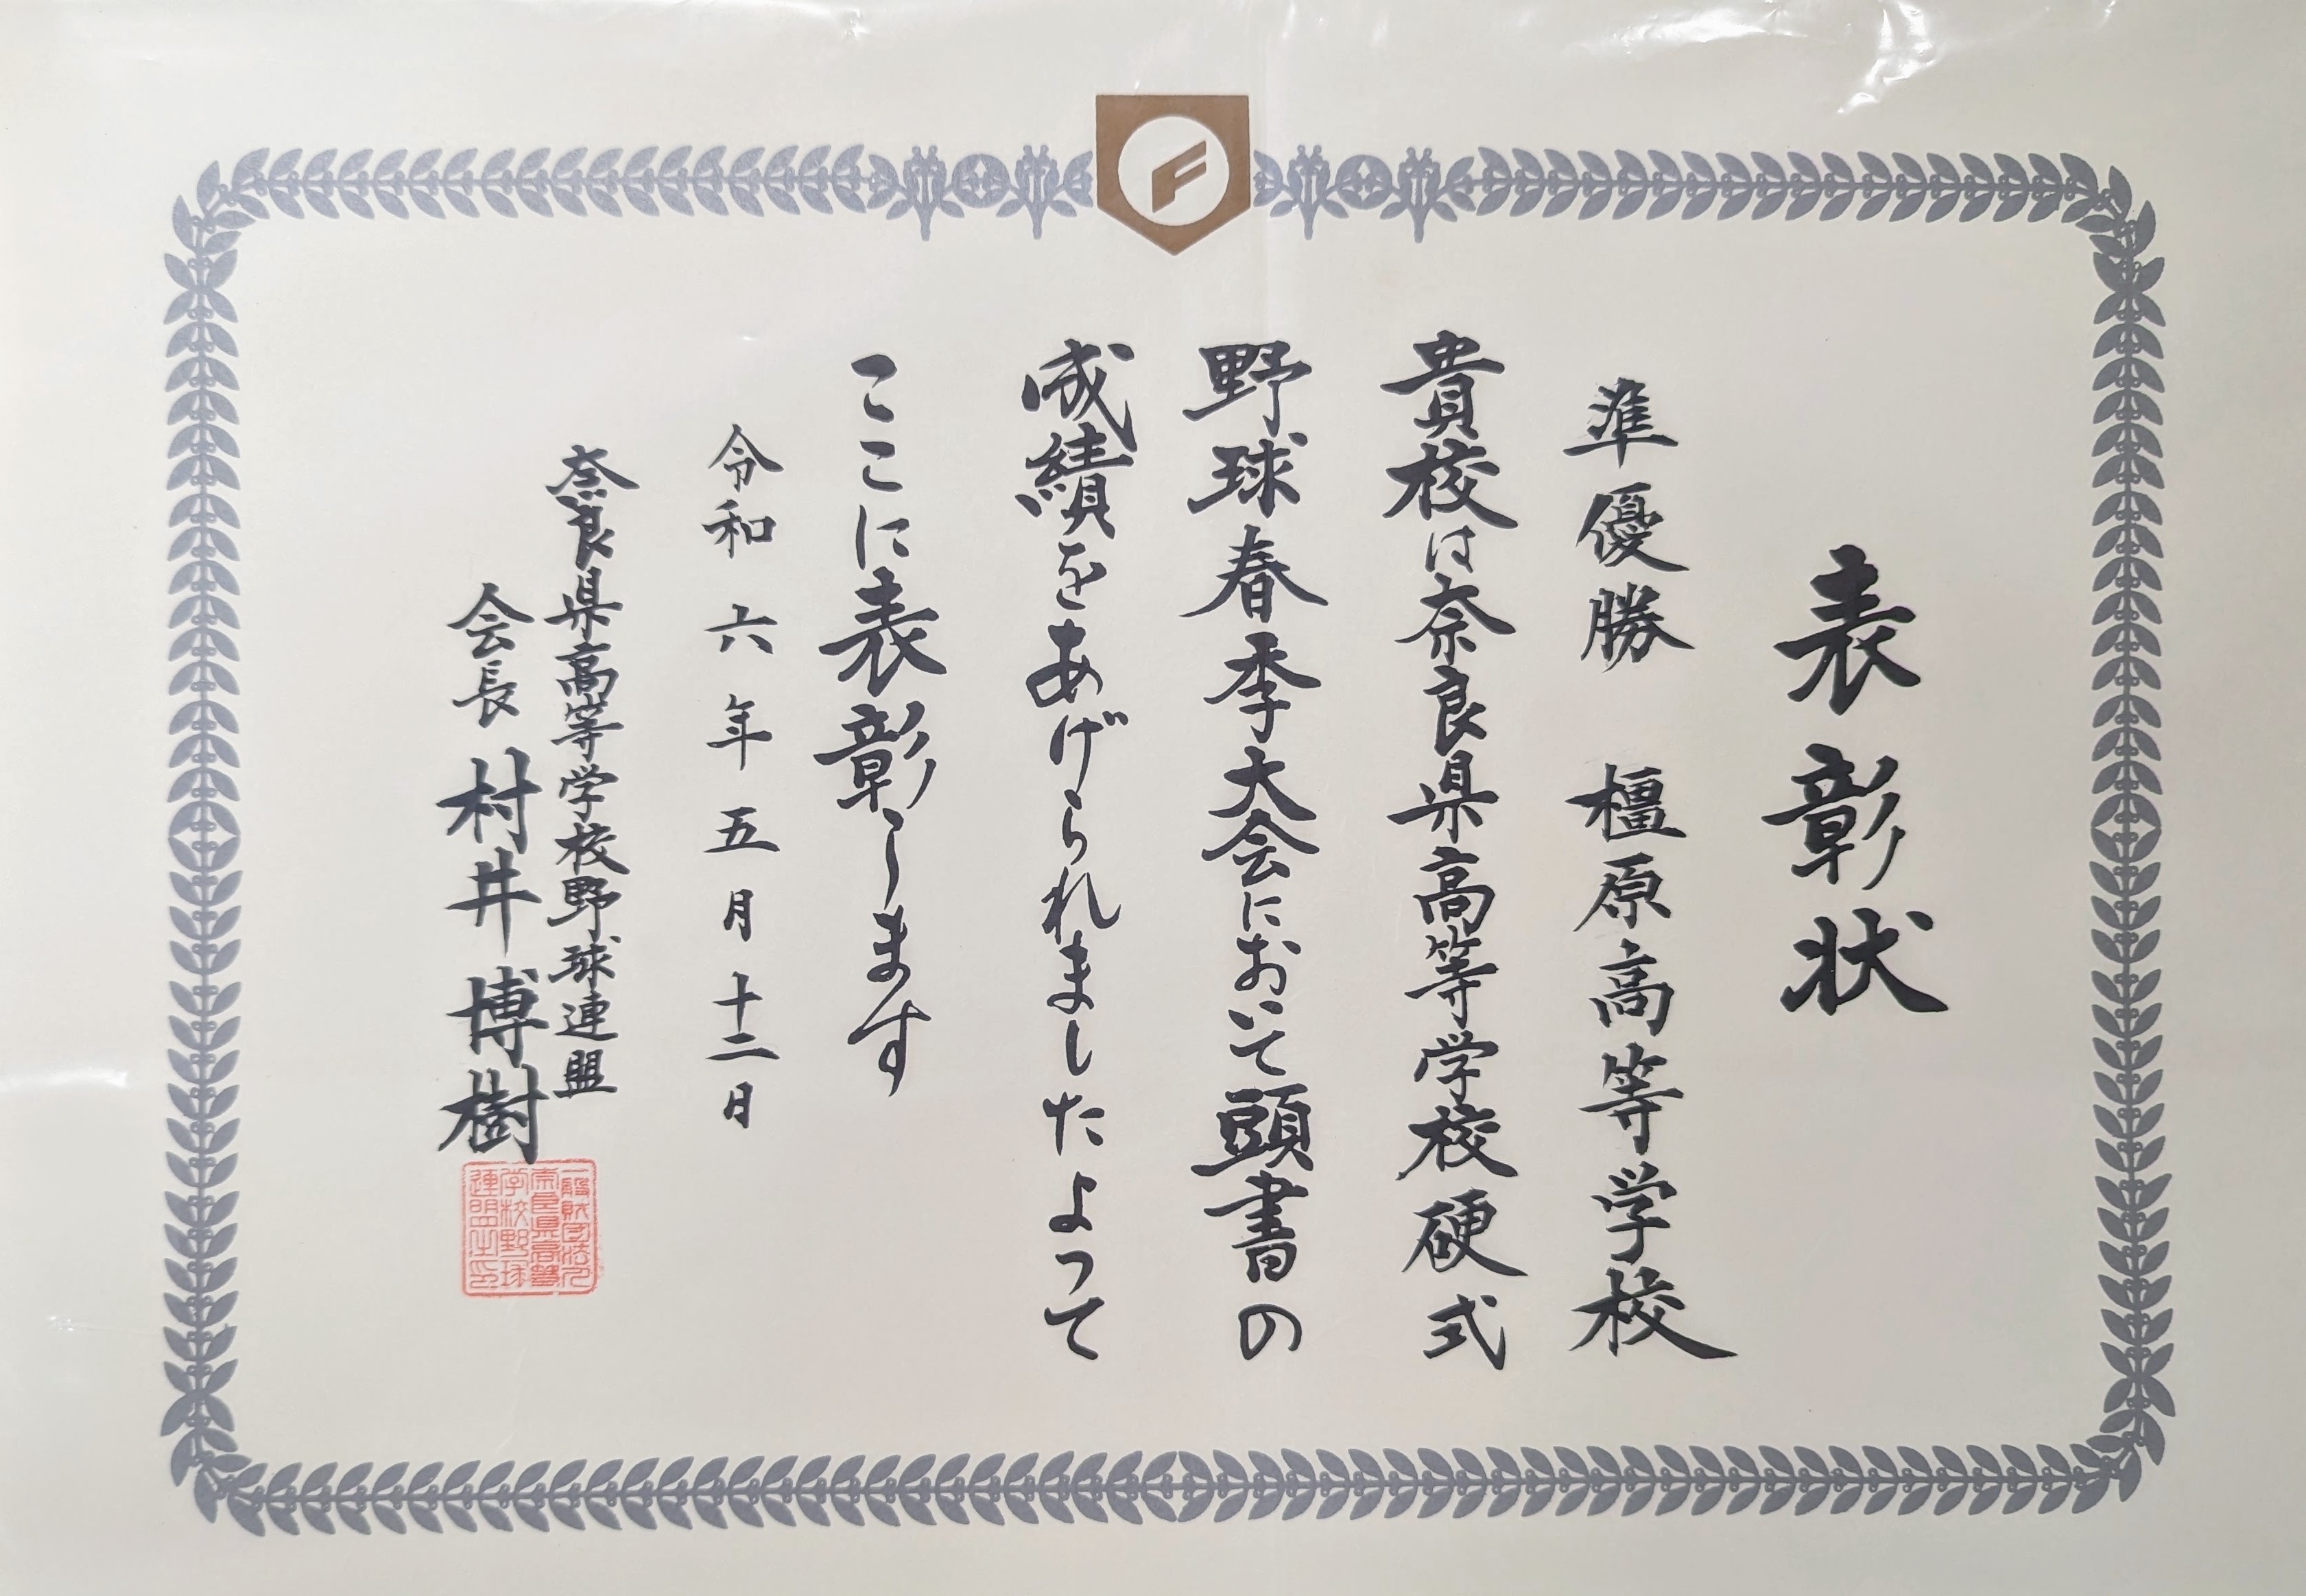 表彰状
準優勝 橿原高等学校
貴校は奈良県高等学校硬式
野球春季大会において頭書の
成績をあげられましたよって
ここに表彰します
令和六年五月十二日
奈良県高等学校野球連盟
会長 村井博樹
一般財団法人
奈良県高等
学校野球
連盟之印
F